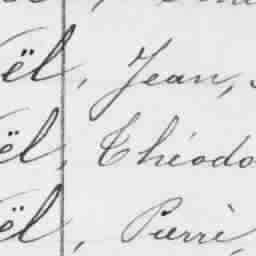 ël, Jean,
ël, Théodo
ël, Pierre,